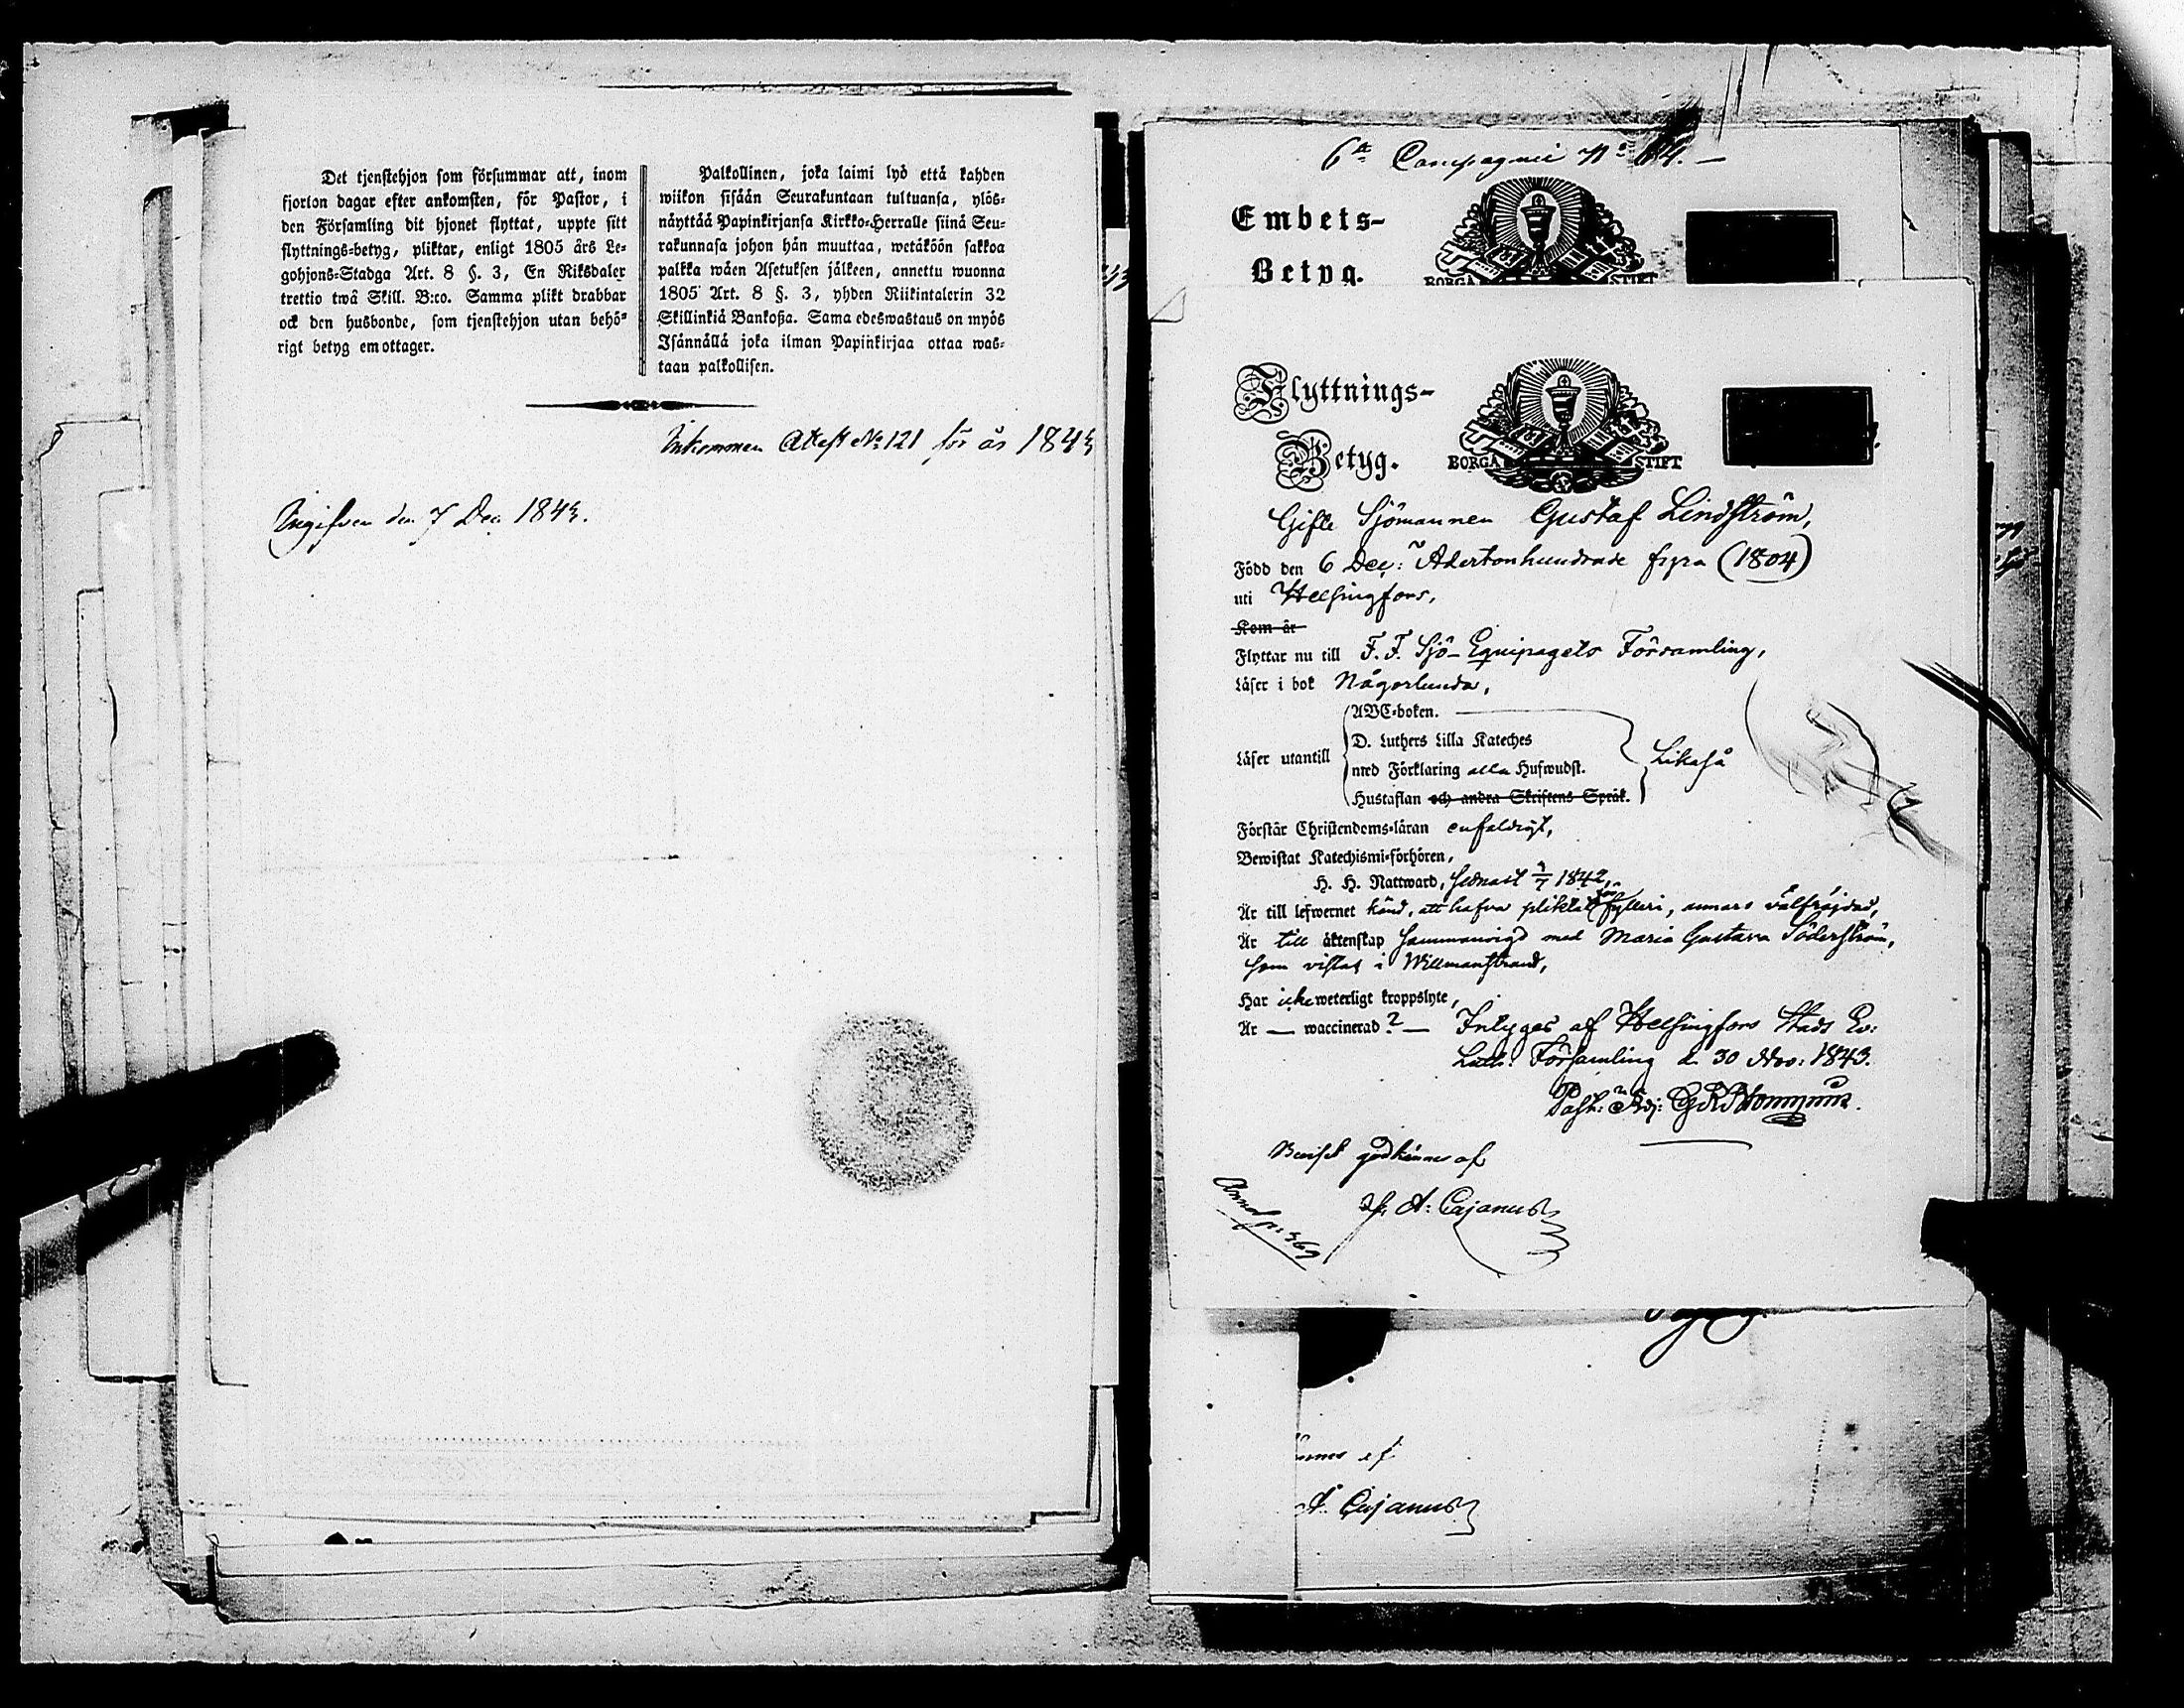 Det tjenstehjon som försummar att, inom
fjorton dagar efter ankomsten, för Pastor, i
den Församling dit hjonet flyttat, uppte sitt
flyttnings-betyg, pliktar, enligt 1805 års Le-
gohjons-Stadga Art. 8 §. 3, En Riksdaler
trettio twå Skill. B:co. Samma plikt drabbar
ock den husbonde, som tjenstehjon utan behö-
rigt betyg emottager.
Palkollinen, joka laimi lyö että kahden
wiikon sisään Seurakuntaan tultuansa, ylös-
näyttää Papinkirjansa Kirkko-Herralle siinä Seu-
rakunnasa johon hän muuttaa, wetäköön sakkoa
palkka wäen Asetuksen jälkeen, annettu wuonna
1805 Art. 8 §. 3, yhden Riikintalerin 32
Skillinkiä Bankoßa. Sama edeswastaus on myös
Isännällä joka ilman Papinkirjaa ottaa was-
taan palkollisen.
Inkommen Attest No 121 för år 1843
Ingifven den 7 Dec 1843.
6te Compagnie No 64.
Embets-
Betyg.
BORGÅ STIFT
Flyttnings-
Betyg.
BORGÅ STIFT
Gifte Sjömannen Gustaf Lindström,
Född den 6 Dec: Adertonhundrade fyra (1804)
uti Helsingfors,
Kom år
Flyttar nu till F. F. Sjö-Equipagets Församling,
Läser i bok Någorlunda,
ABC-boken.
D. Luthers Lilla Kateches
Läser utantill med Förklaring alla Hufwudst. Likaså
Hustaflan och andra Skriftens Språk.
Förstår Christendoms-läran enfaldigt,
Bewistat Katechismi-förhören,
H. H. Nattward, sednast 2/7 1842,
Är till lefwernet känd, att hafva pliktat för fylleri, annars välfräjdad,
Är till äktenskap sammanvigd med Maria Gustava Söderström,
som vistas i Willmanstrand,
Har icke weterligt kroppslyte,
Är — waccinerad? — Intygas af Helsingfors Stads Ev:
Luth: Församling d. 30 Nov: 1843.
Past: Adj:
Beviset godkännes af
A: Cajanus
nnes af
A. Cajanus